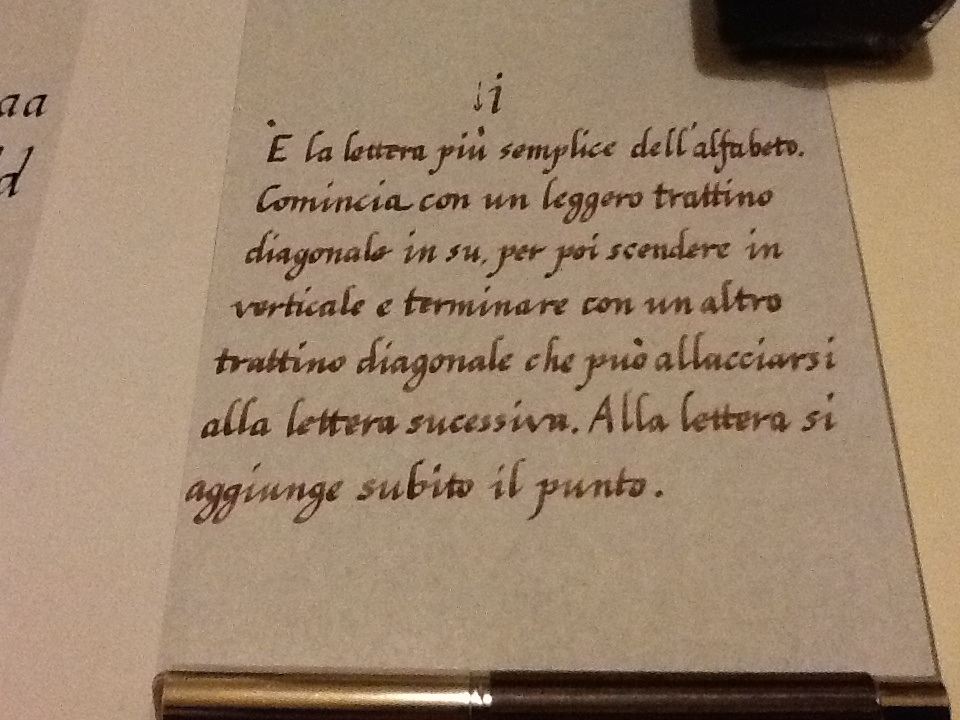 aa
d
↓i
È la lettera più semplice dell'alfabeto.
Comincia con un leggero trattino
diagonale in su, per poi scendere in
verticale e terminare con un altro
trattino diagonale che può allacciarsi
alla lettera sucessiva. Alla lettera si
aggiunge subito il punto.